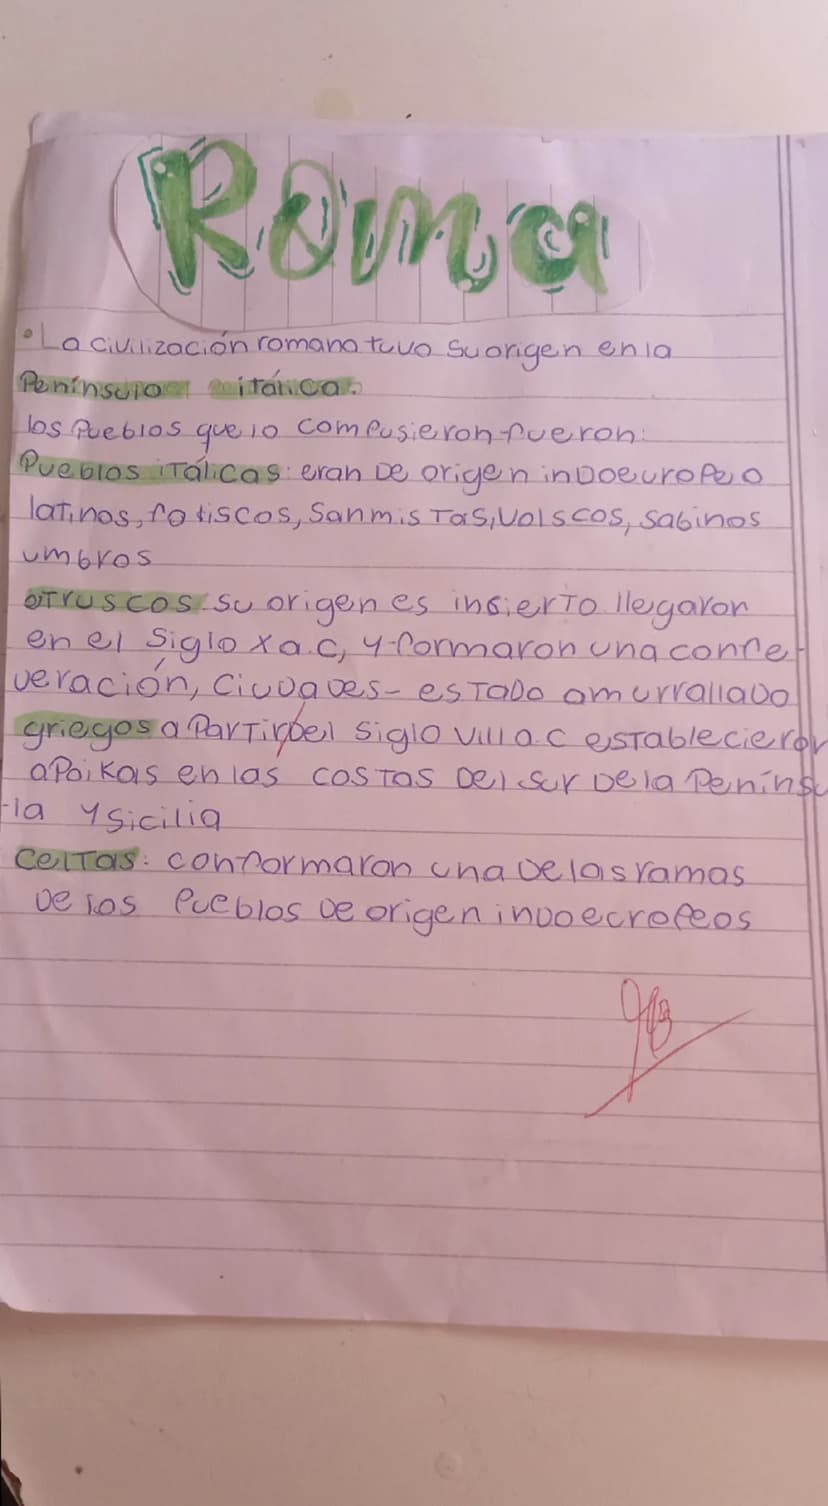 Roma
• La civilización romana tuvo su origen en la
Península itálica.
los pueblos que lo compusieron fueron:
Pueblos itálicas: eran de origen indoeuropeo
latinos, fatiscos, Sanmistas, Volscos, sabinos
umbros
otruscos su origen es insierto llegaron
en el siglo x a.c, y formaron una confe
deración, ciudades-estado amurrallado
griegos a partir del siglo VIII a.c establecieron
apoikas en las costas del sur de la Penínsu
-la y sicilia
Celtas: conformaron una de las ramas
de los pueblos de origen indoecropeos